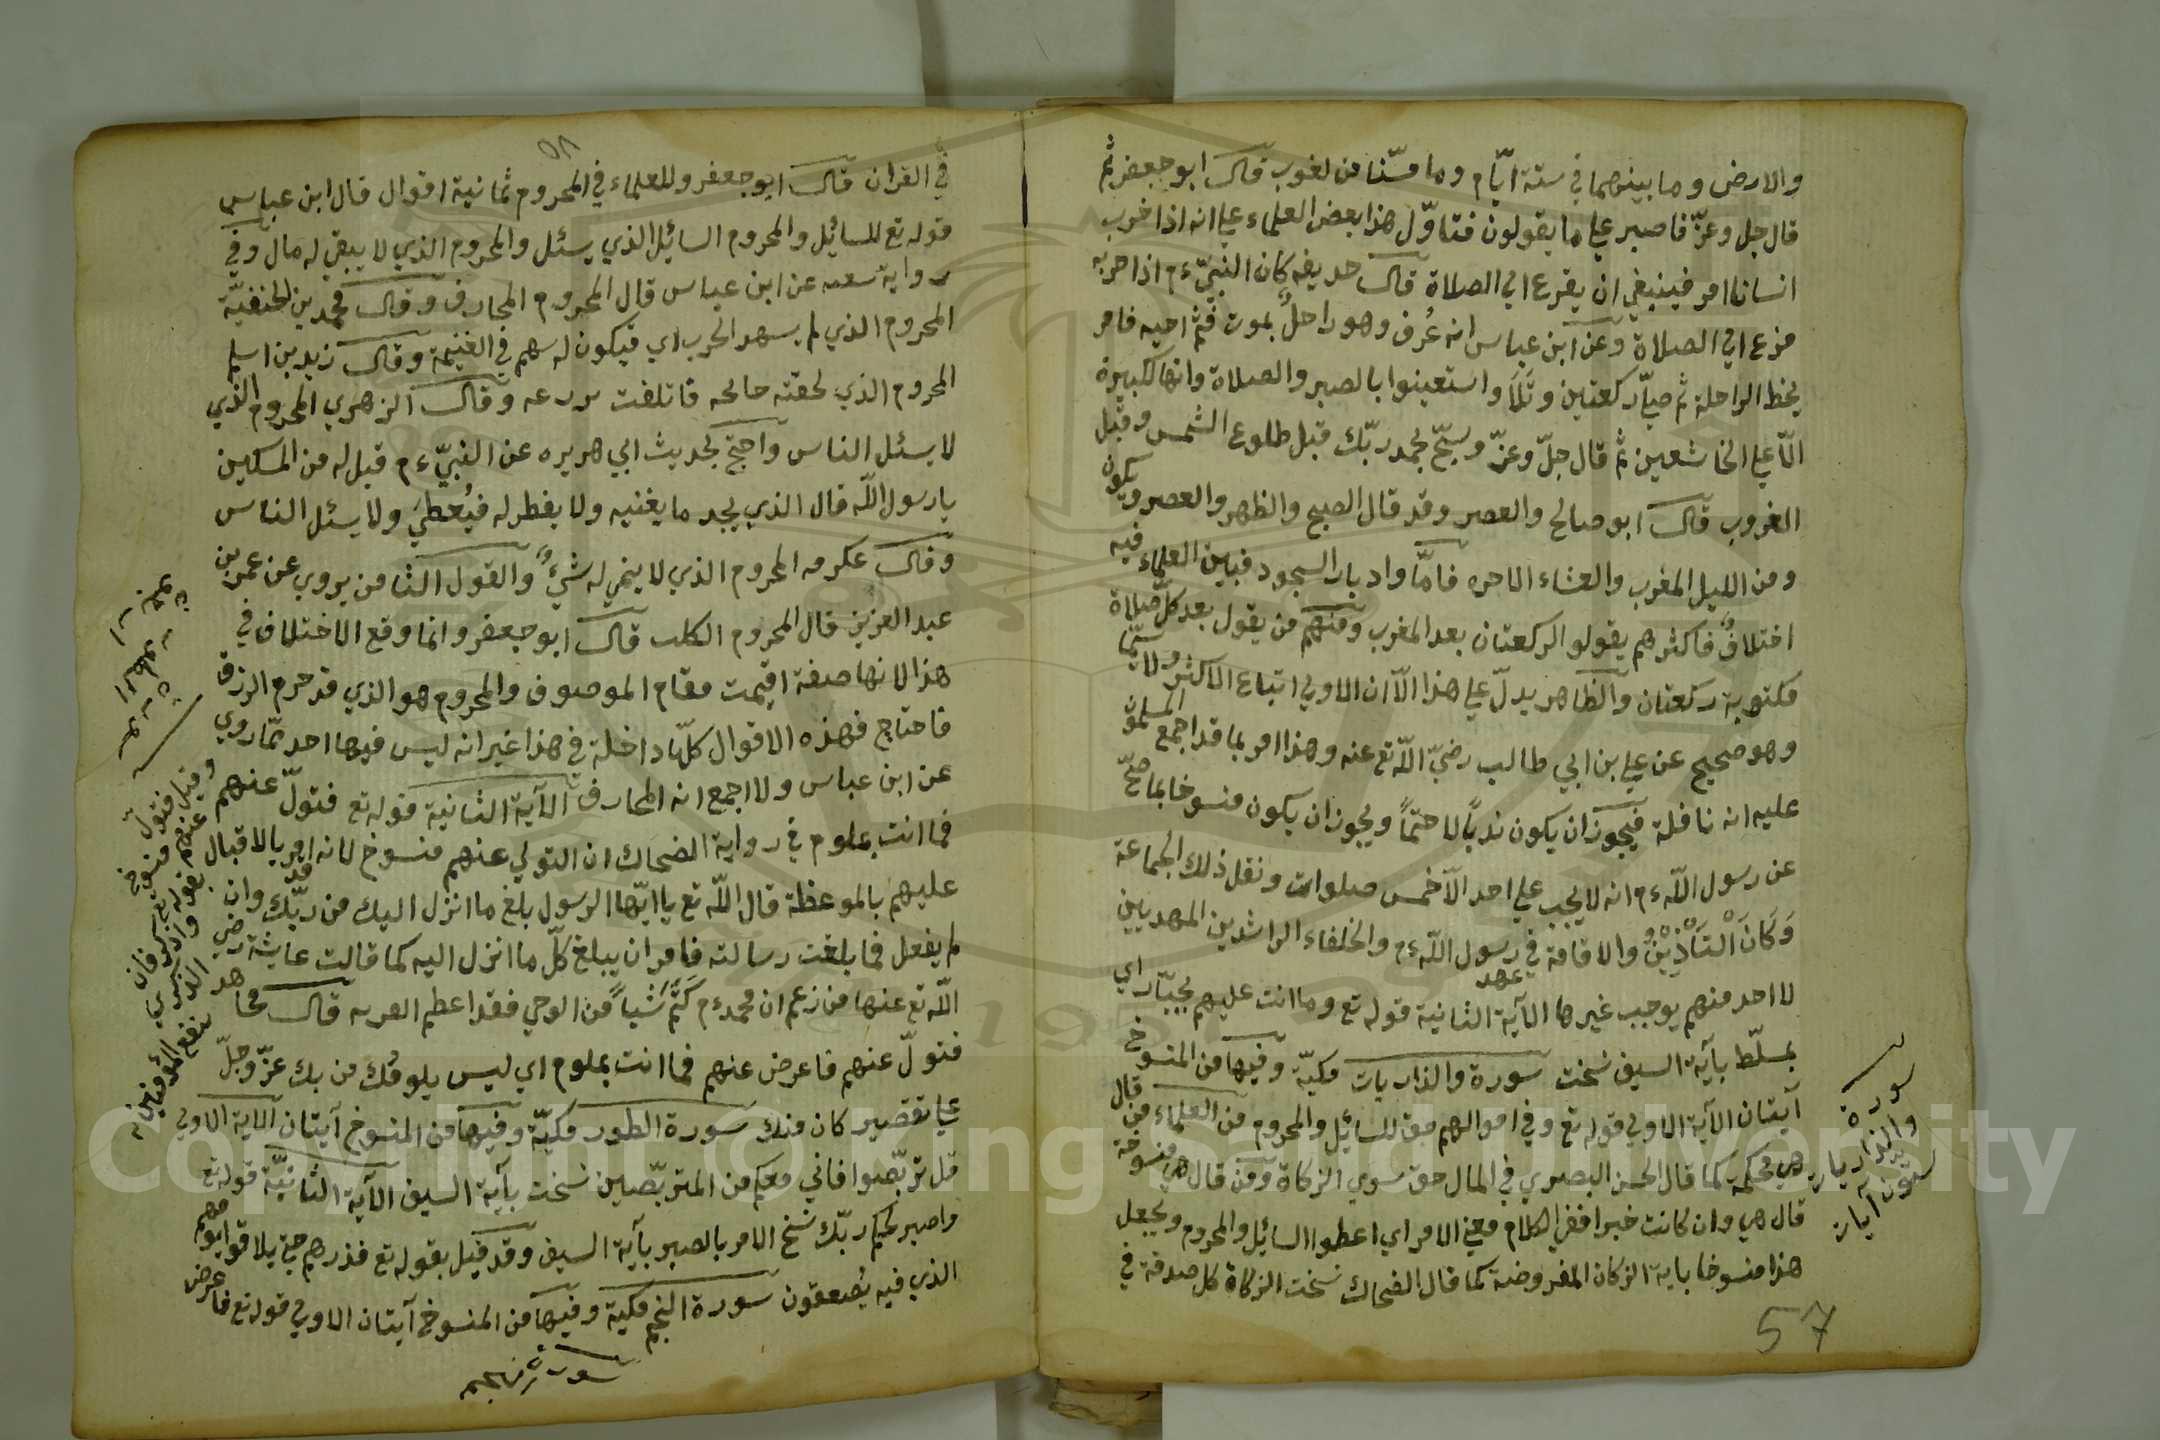 والارض وما بينهما في ستة ايّام وما مسّنا من لغوب قال ابو جعفر ثم
قال جل وعزّ فاصبر علي ما يقولون فتاوّل هذا بعض العلماء علي انه اذا حزب
انسانا امر فينبغي ان يفزع الي الصلاة قال حذيفه كان النبيّ ءم اذا حزبه
فزع الي الصلاة وعن ابن عباس انه عُرف وهو راحلٌ بموت قثم اخيه فامر
بحط الراحلة ثم صلّي ركعتين وتَلَا واستعينوا بالصبر والصلاة وانها لكبيرة
الّا علي الخاشعين ثم قال جلّ وعزّ وسبّح بحمد ربّك قبل طلوع الشمس وقبل
الغروب قال ابو صالح والعصر وقد قال الصبح والظهر والعصر ويكون
ومن الليل المغرب والعشاء الاخره فامّا وادبار السجود فبين العلماء فيه
اختلافٌ فاكثرهم يقولو الركعتان بعد المغرب ومنهم من يقول بعد كلّ صلاة
مكتوبة ركعتان والظاهر يدلّ علي هذا الّا ان الاولي اتباع الاكثر ولا سيّما
وهو صحيح عن علي بن ابي طالب رضيّ اللّه تع عنه وهذا امر بما قد اجمع المسلمون
عليه انه نافلة فيجوز ان يكون ندباً لا حتماً ويجوز ان يكون منسوخا بما صحّ
عن رسول اللّه ءم انه لا يجب علي احد الّا خمس صلوات ونقل ذلك الجماعة
وَكَانَ الْتَأْذِيْنُ والاقامة في عهد رسول اللّه ءم والخلفاء الراشدين المهديين
لا احد منهم يوجب غيرها الآية الثانية قوله تع وما انت عليهم بجبّار اي
بمسلّط بآية السيف نسخت سورة والذاريات مكيّة وفيها من المنسوخ
آيتان الآية الاولي قوله تع وفي اموالهم حق للسائل والمحروم من العلماء من قال
هي محكمة كما قال الحسن البصري في المال حق سوي الزكاة ومن قال هي منسوخة
قال هي وان كانت خبرا ففي الكلام معني الامر اي اعطوا السائل والمحروم ويجعل
هذا منسوخا باية الزكان المفروضة كما قال الضحاك نسخت الزكاة كل صدقة في
سورة
والذاريات
ستون آيات
57
٥٨
في القران قال ابو جعفر وللعلماء في المحروم ثمانية اقوال قال ابن عباس
قوله تع للسائل والمحروم السائل الذي يسئل والمحروم الذي لا يبقي له مال وفي
رواية سعيد عن ابن عباس قال المحروم المحارف وقال محمد بن الحنفيّة
المحروم الذي لم يسهد الحرب اي فيكون له سهم في الغنيمة وقال زيد بن اسلم
المحروم الذي لحقته جائحه فاتلفت زرعه وقال الزهري المحروم الذي
لا يسئل الناس واحتج بحديث ابي هريره عن النبيّ ءم قيل له من المسكين
يا رسول اللّه قال الذي يجد ما يغنيه ولا يفطر له فيُعطيَ ولا يسئل الناس
وقال عكرمه المحروم الذي لا ينمي له شيءٌ والقول الثامن يروي عن عمر بن
عبد العزيز قال المحروم الكلب قال ابو جعفر وانما وقع الاختلاف في
هذا لانها صفة اقيمت مقام الموصوف والمحروم هو الذي قد حرم الرزق
فاحتاج فهذه الاقوال كلّها داخلة في هذا غير انه ليس فيها احد ممّا روي
عن ابن عباس ولا اجمع انه المحارف الآية الثانية قوله تع فتولّ عنهم
فما انت بملوم في رواية الضحاك ان التولي عنهم منسوخ لانه قد امر بالاقبال
عليهم بالموعظة قال اللّه تع يا ايّها الرسول بلغ ما انزل اليك من ربّك وان
لم يفعل فما بلغت رسالته فامر ان يبلغ كلّ ما انزل اليه كما قالت عايشة رضي
اللّه تع عنها من زعم ان محمد ءم كَتَمَ شَياً من الوحي فقد اعظم الفريه قال مجاهد
فتولّ عنهم فاعرض عنهم فما انت بملوم اي ليس يلومُك من بك عزّ وجلّ
علي تقصير كان منك سورة الطور مكيّة وفيها من المنسوخ آيتان الآية الاولي
قل تربّصوا فاني معكم من المتربّصين نسخت بآية السيف الآية الثانيّة قوله تع
واصبر لحكم ربّك نسخ الامر بالصبر بآية السيف وقد قيل بقوله تع فذرهم حتي يلاقو ايومهم
الذي فيه يُصعقون سورة النجم مكية وفيها من المنسوخ آيتان الاولي قوله تع فاعرض
سورة النجم
وقيل فتولّ
عنهم منسوخ
بقوله تع وذكر فان
الذكري
تنفع المؤمنين
Copyright © King Saud University
1957